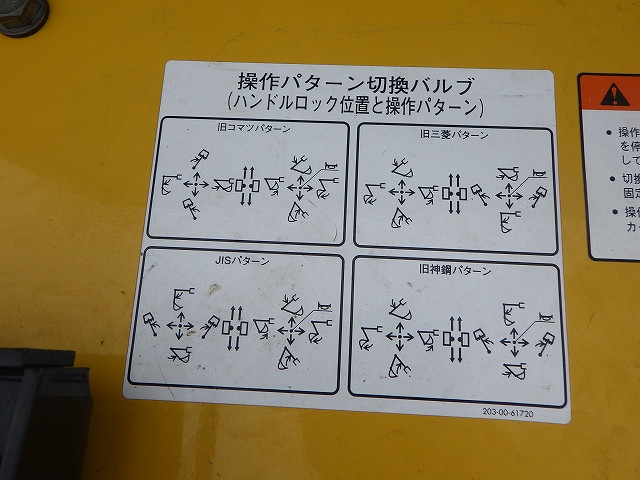 操作パターン切換バルブ
(ハンドルロック位置と操作パターン)
旧コマツパターン
旧三菱パターン
JISパターン
旧神鋼パターン
203-00-61720
● 操作
を停
して
● 切換
固定
● 操作
カ